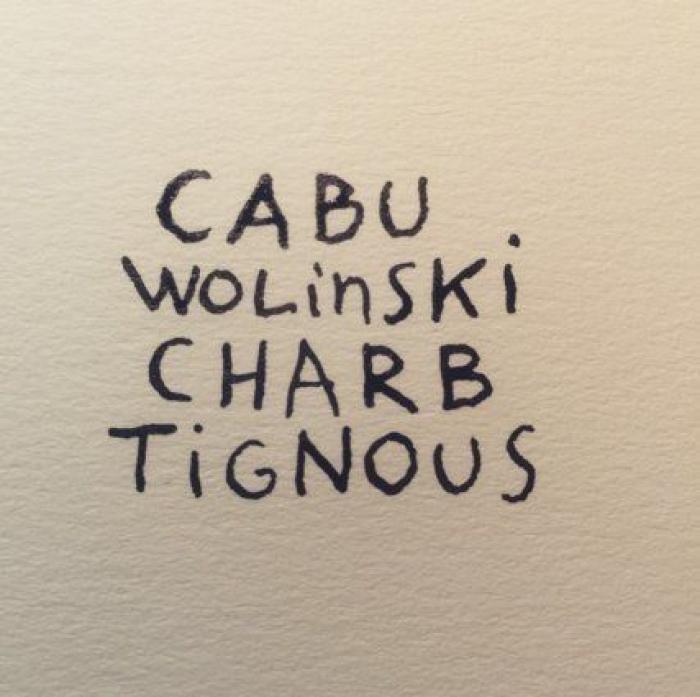 CABU
WOLinSKi
CHARB
TiGNOUS